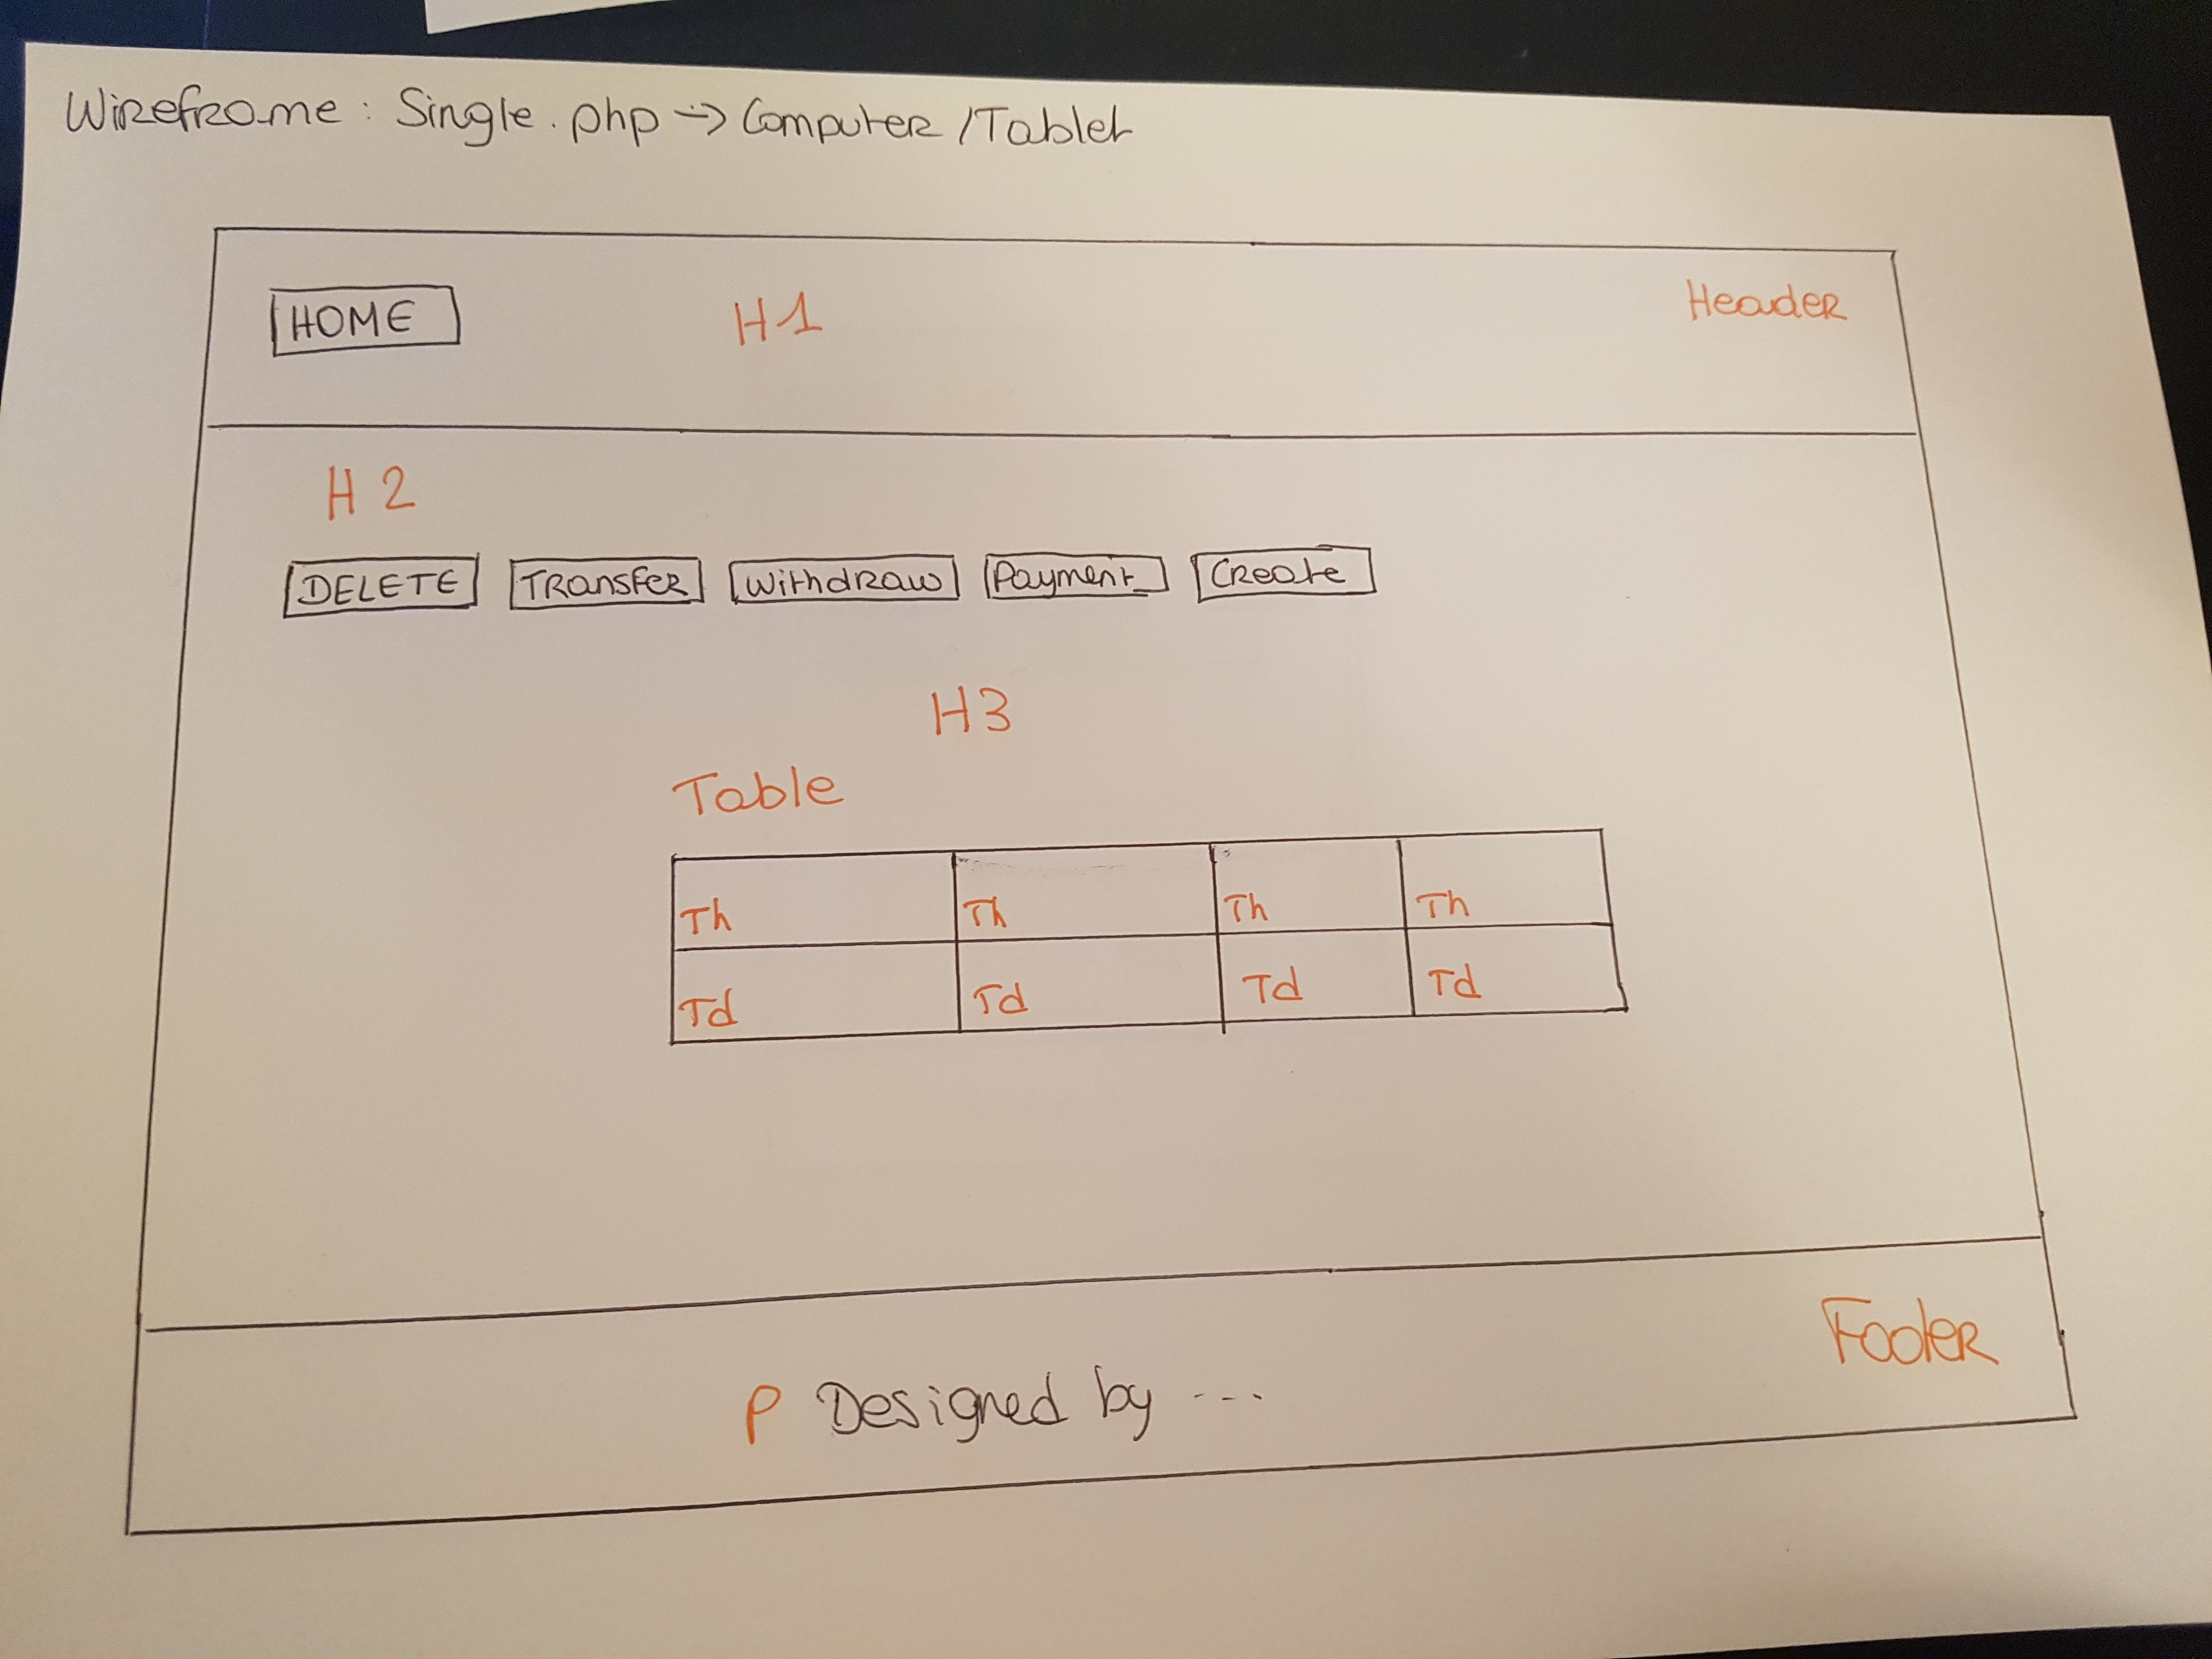 Wireframe : Single.php -> Computer /Tablet
HOME H1 Header
H2
DELETE Transfer Withdraw Payment Create
H3
Table
Th Th Th Th
Td Td Td Td
Footer
P Designed by ---